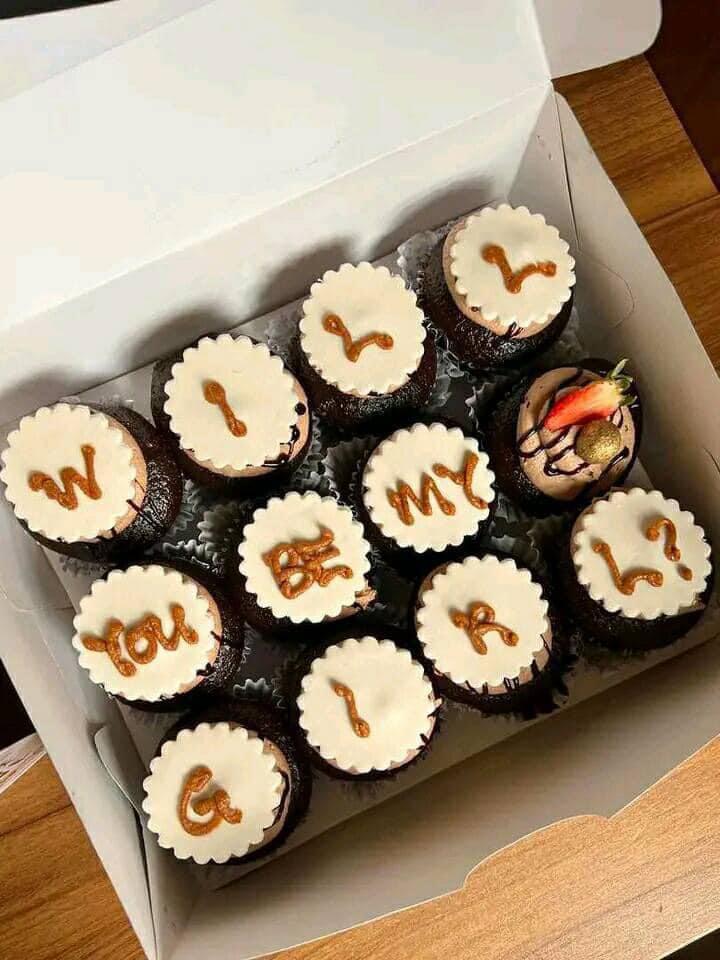 W I L L
YOU BE MY
G I R L?